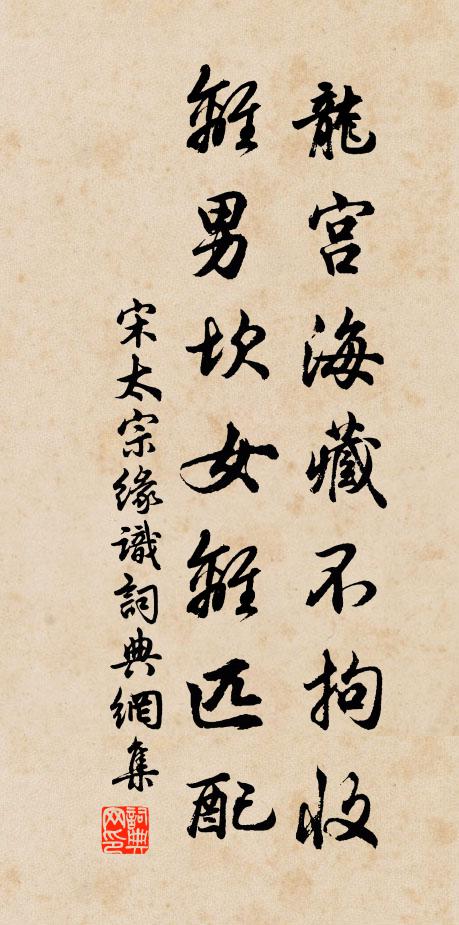 龍宮海藏不拘收
離男坎女離匹配
宋太宗緣識詞典網集
詞典網印